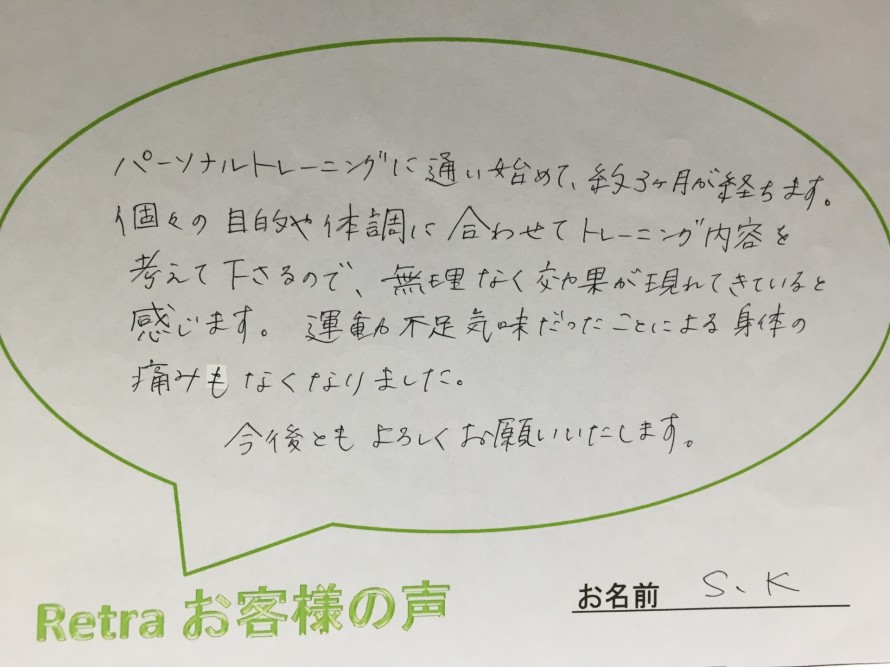 パーソナルトレーニングに通い始めて、約3ヶ月が経ちます。
個々の目的や体調に合わせてトレーニング内容を
考えて下さるので、無理なく効果が現れてきていると
感じます。運動不足気味だったことによる身体の
痛みもなくなりました。
今後ともよろしくお願いいたします。
Retra お客様の声
お名前 S、K